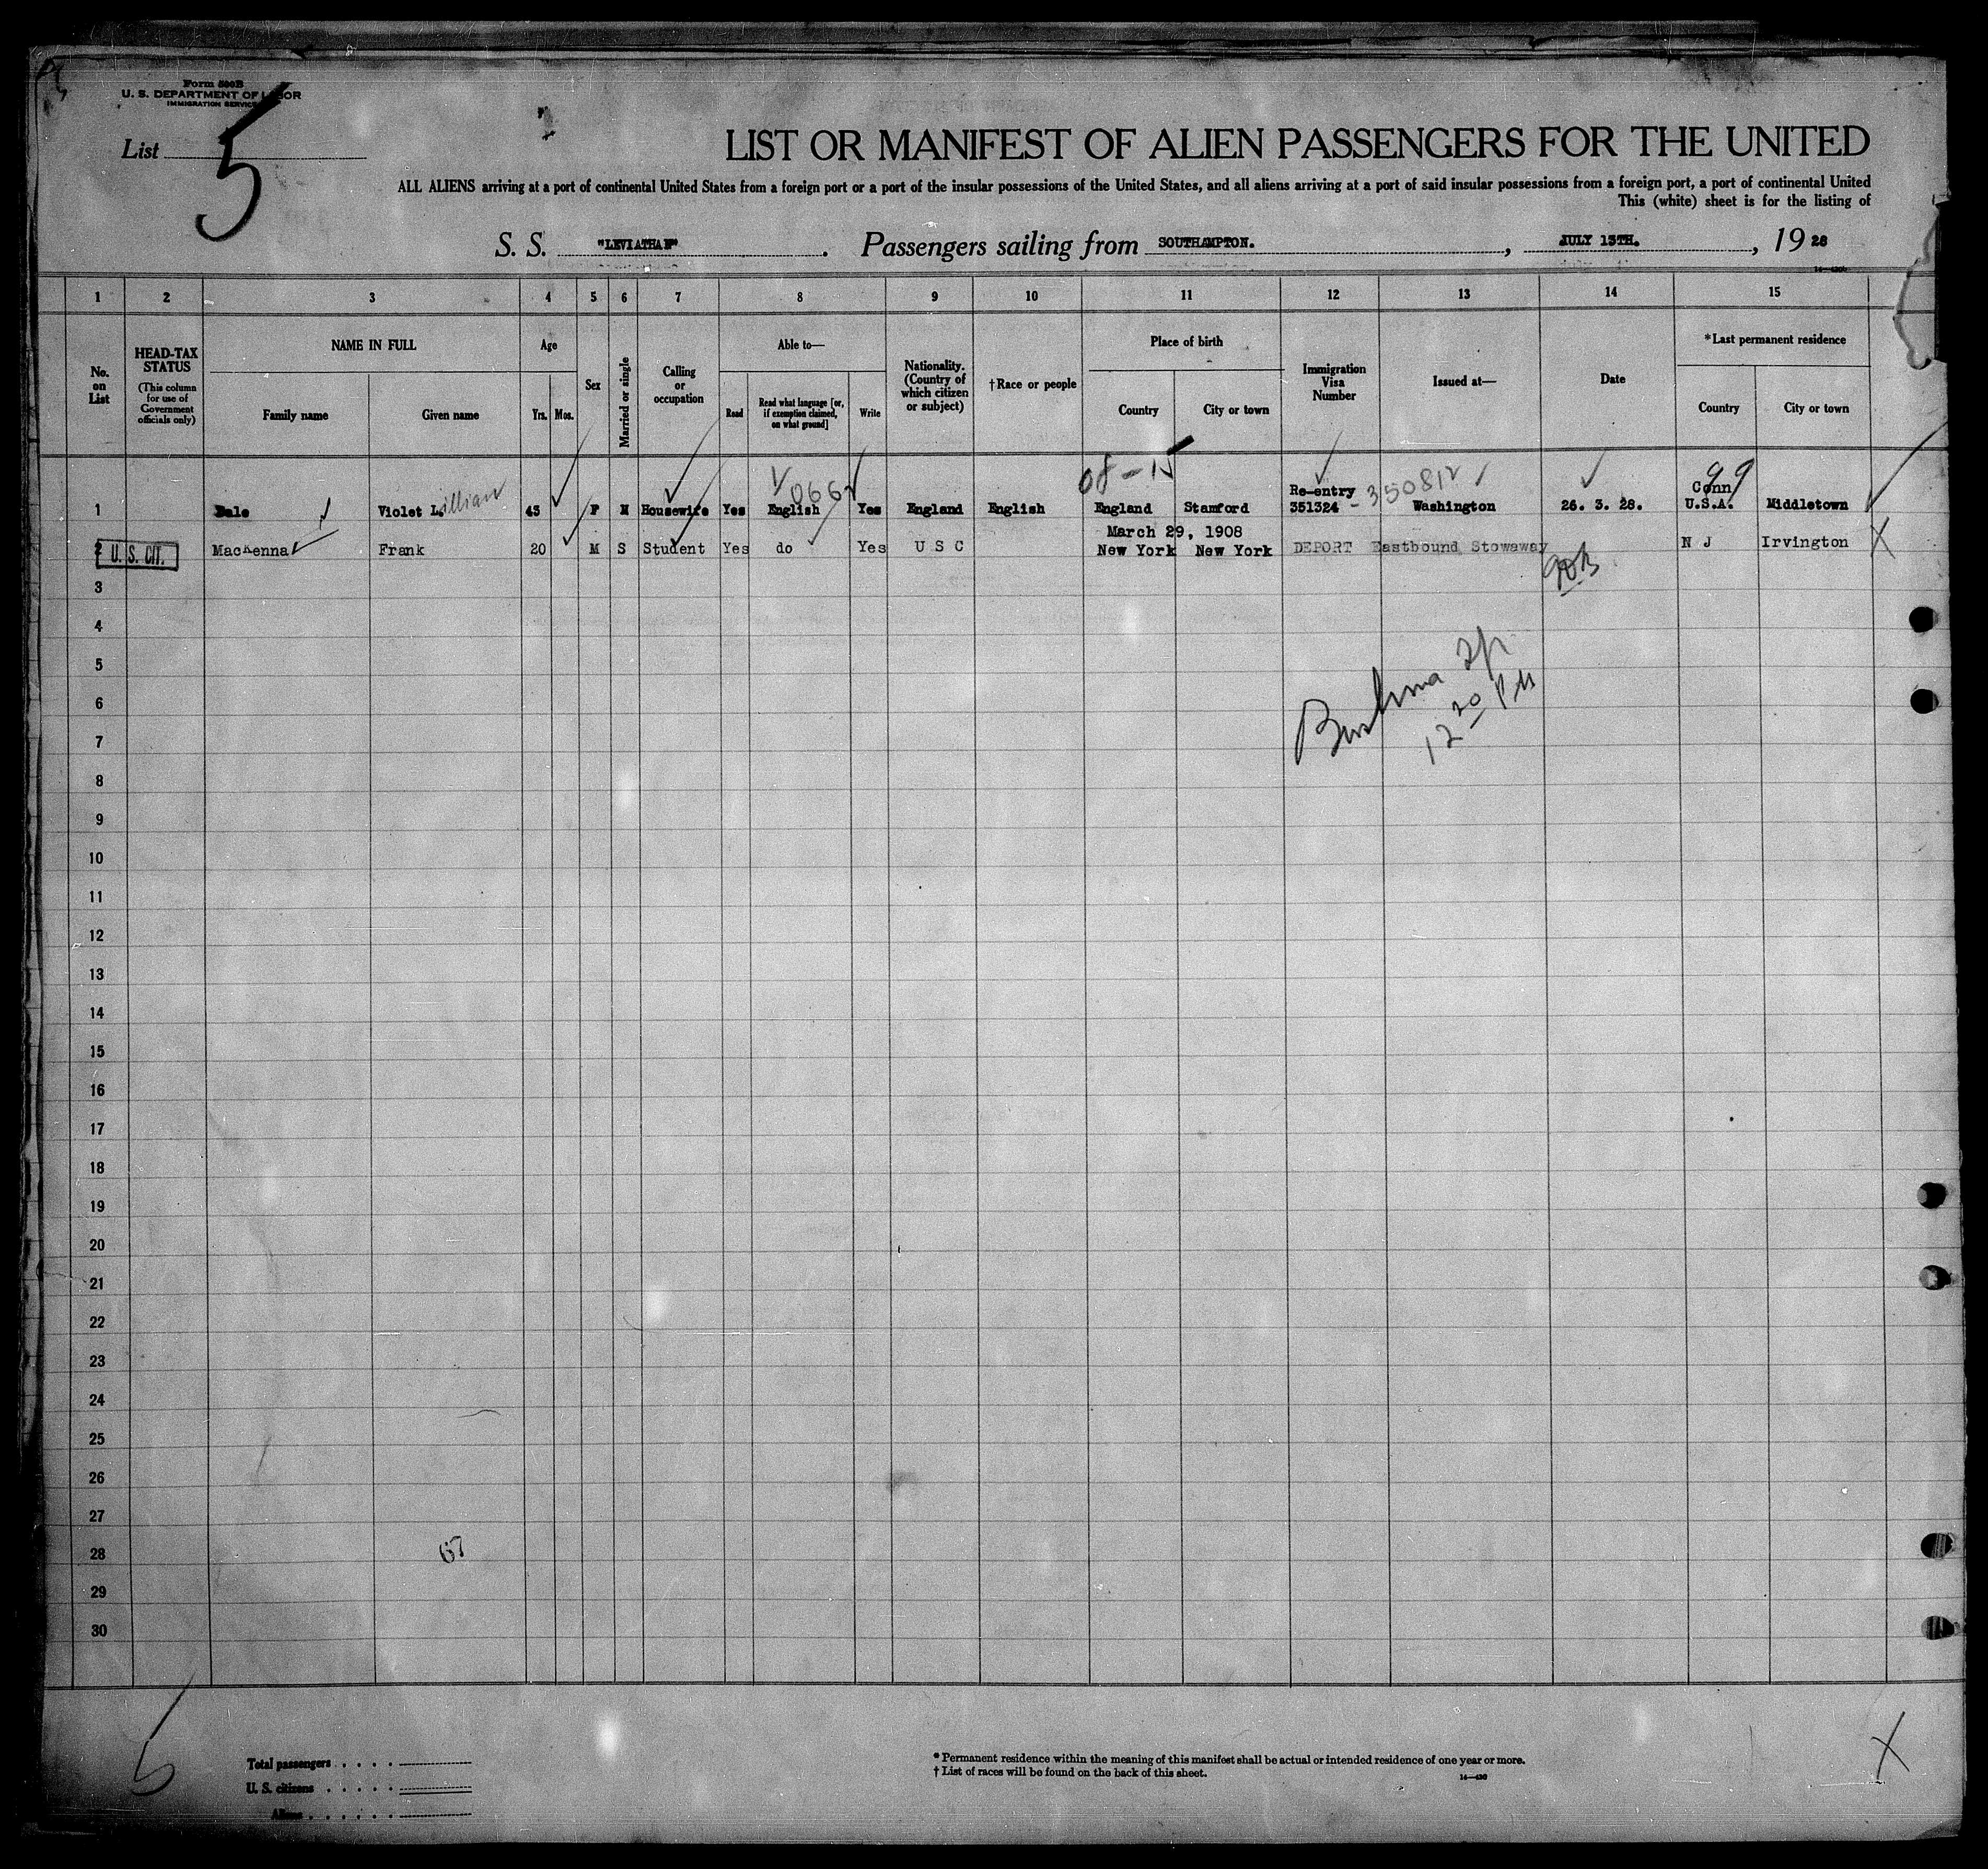 Form 500B
U. S. DEPARTMENT OF LABOR
IMMIGRATION SERVICE
List 5
LIST OR MANIFEST OF ALIEN PASSENGERS FOR THE UNITED
ALL ALIENS arriving at a port of continental United States from a foreign port or a port of the insular possessions of the United States, and all aliens arriving at a port of said insular possessions from a foreign port, a port of continental United
This (white) sheet is for the listing of
S. S. "LEVIATHAN". Passengers sailing from SOUTHAMPTON. , JULY 13TH. , 19 28
1 2 3 4 5 6 7 8 9 10 11 12 13 14 15
No. on List
HEAD-TAX STATUS
(This column for use of Government officials only)
NAME IN FULL
Family name Given name
Age
Yrs. Mos.
Sex
Married or single
Calling or occupation
Able to—
Read
Read what language [or, if exemption claimed, on what ground]
Write
Nationality. (Country of which citizen or subject)
†Race or people
Place of birth
Country City or town
Immigration Visa Number
Issued at—
Date
*Last permanent residence
Country City or town
08-15 99
1 Dale Violet Lillian 43 F M Housewife Yes English Yes England English England Stamford Re-entry 351324 - 350812 Washington 26. 3. 28. Conn U.S.A. Middletown
March 29, 1908
2 U. S. CIT. MacKenna Frank 20 M S Student Yes do Yes U S C New York New York DEPORT Eastbound Stowaway N J Irvington X
3
4
5
6
12 20 PM
7
8
9
10
11
12
13
14
15
16
17
18
19
20
21
22
23
24
25
26
27
28 67
29
30
5
X
Total passengers
U. S. citizens
Aliens
* Permanent residence within the meaning of this manifest shall be actual or intended residence of one year or more.
† List of races will be found on the back of this sheet.